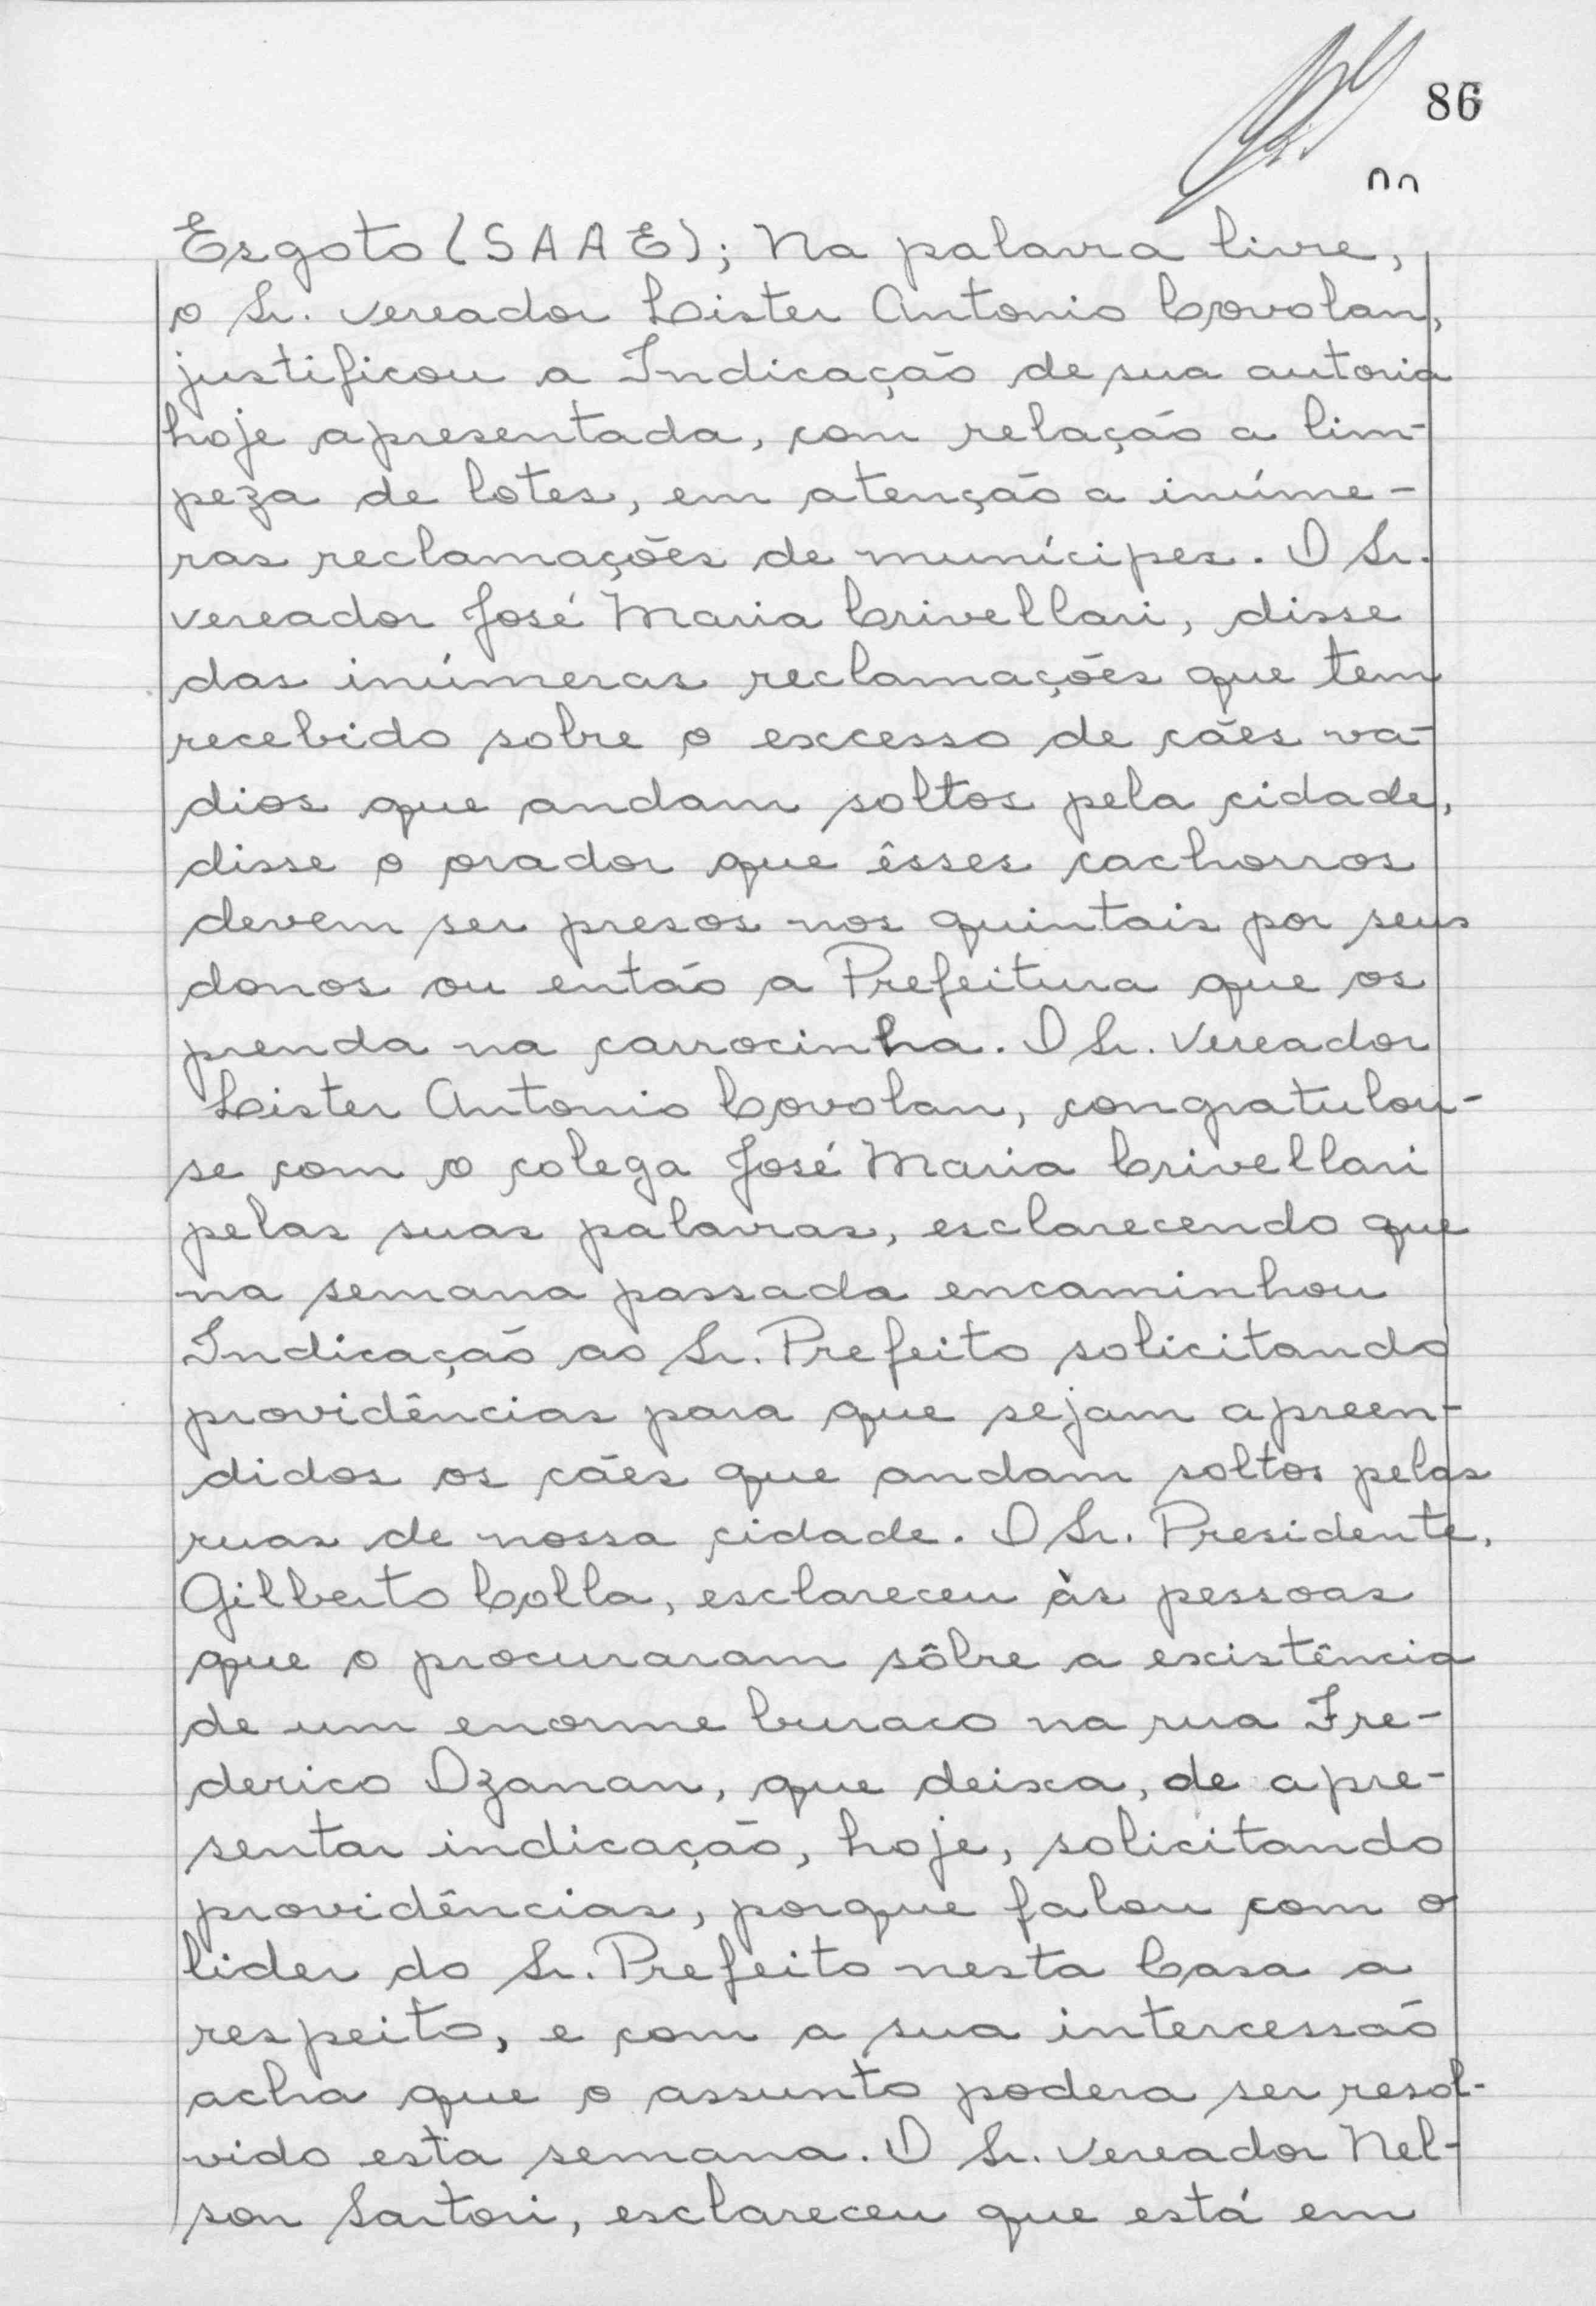 86
Esgoto (SAAE); Na palavra livre,
o Sr. vereador Lister Antonio Covolan,
justificou a Indicação de sua autoria
hoje apresentada, com relação a lim-
peza de lotes, em atenção a inúme-
ras reclamações de munícipes. O Sr.
vereador José Maria Crivellari, disse
das inúmeras reclamações que tem
recebido sobre o excesso de cães va-
dios que andam soltos pela cidade,
disse o orador que êsses cachorros
devem ser presos nos quintais por seus
donos ou então a Prefeitura que os
prenda na carrocinha. O Sr. Vereador
Lister Antonio Covolan, congratulou-
se com o colega José Maria Crivellari
pelas suas palavras, esclarecendo que
na semana passada encaminhou
Indicação ao Sr. Prefeito solicitando
providências para que sejam apreen-
didos os cães que andam soltos pelas
ruas de nossa cidade. O Sr. Presidente,
Gilberto Colla, esclareceu às pessoas
que o procuraram sôbre a existência
de um enorme buraco na rua Fre-
derico Ozanan, que deixa, de apre-
sentar indicação, hoje, solicitando
providências, porque falou com o
lider do Sr. Prefeito nesta Casa a
respeito, e com a sua intercessão
acha que o assunto podera ser resol-
vido esta semana. O Sr. vereador Nel-
son Sartori, esclareceu que está em